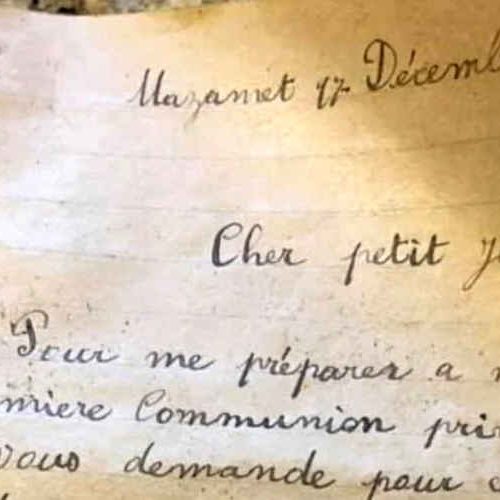 Mazamet 17 Décemb
Cher petit J
Pour me préparer a
miere Communion pri
vous demande pour